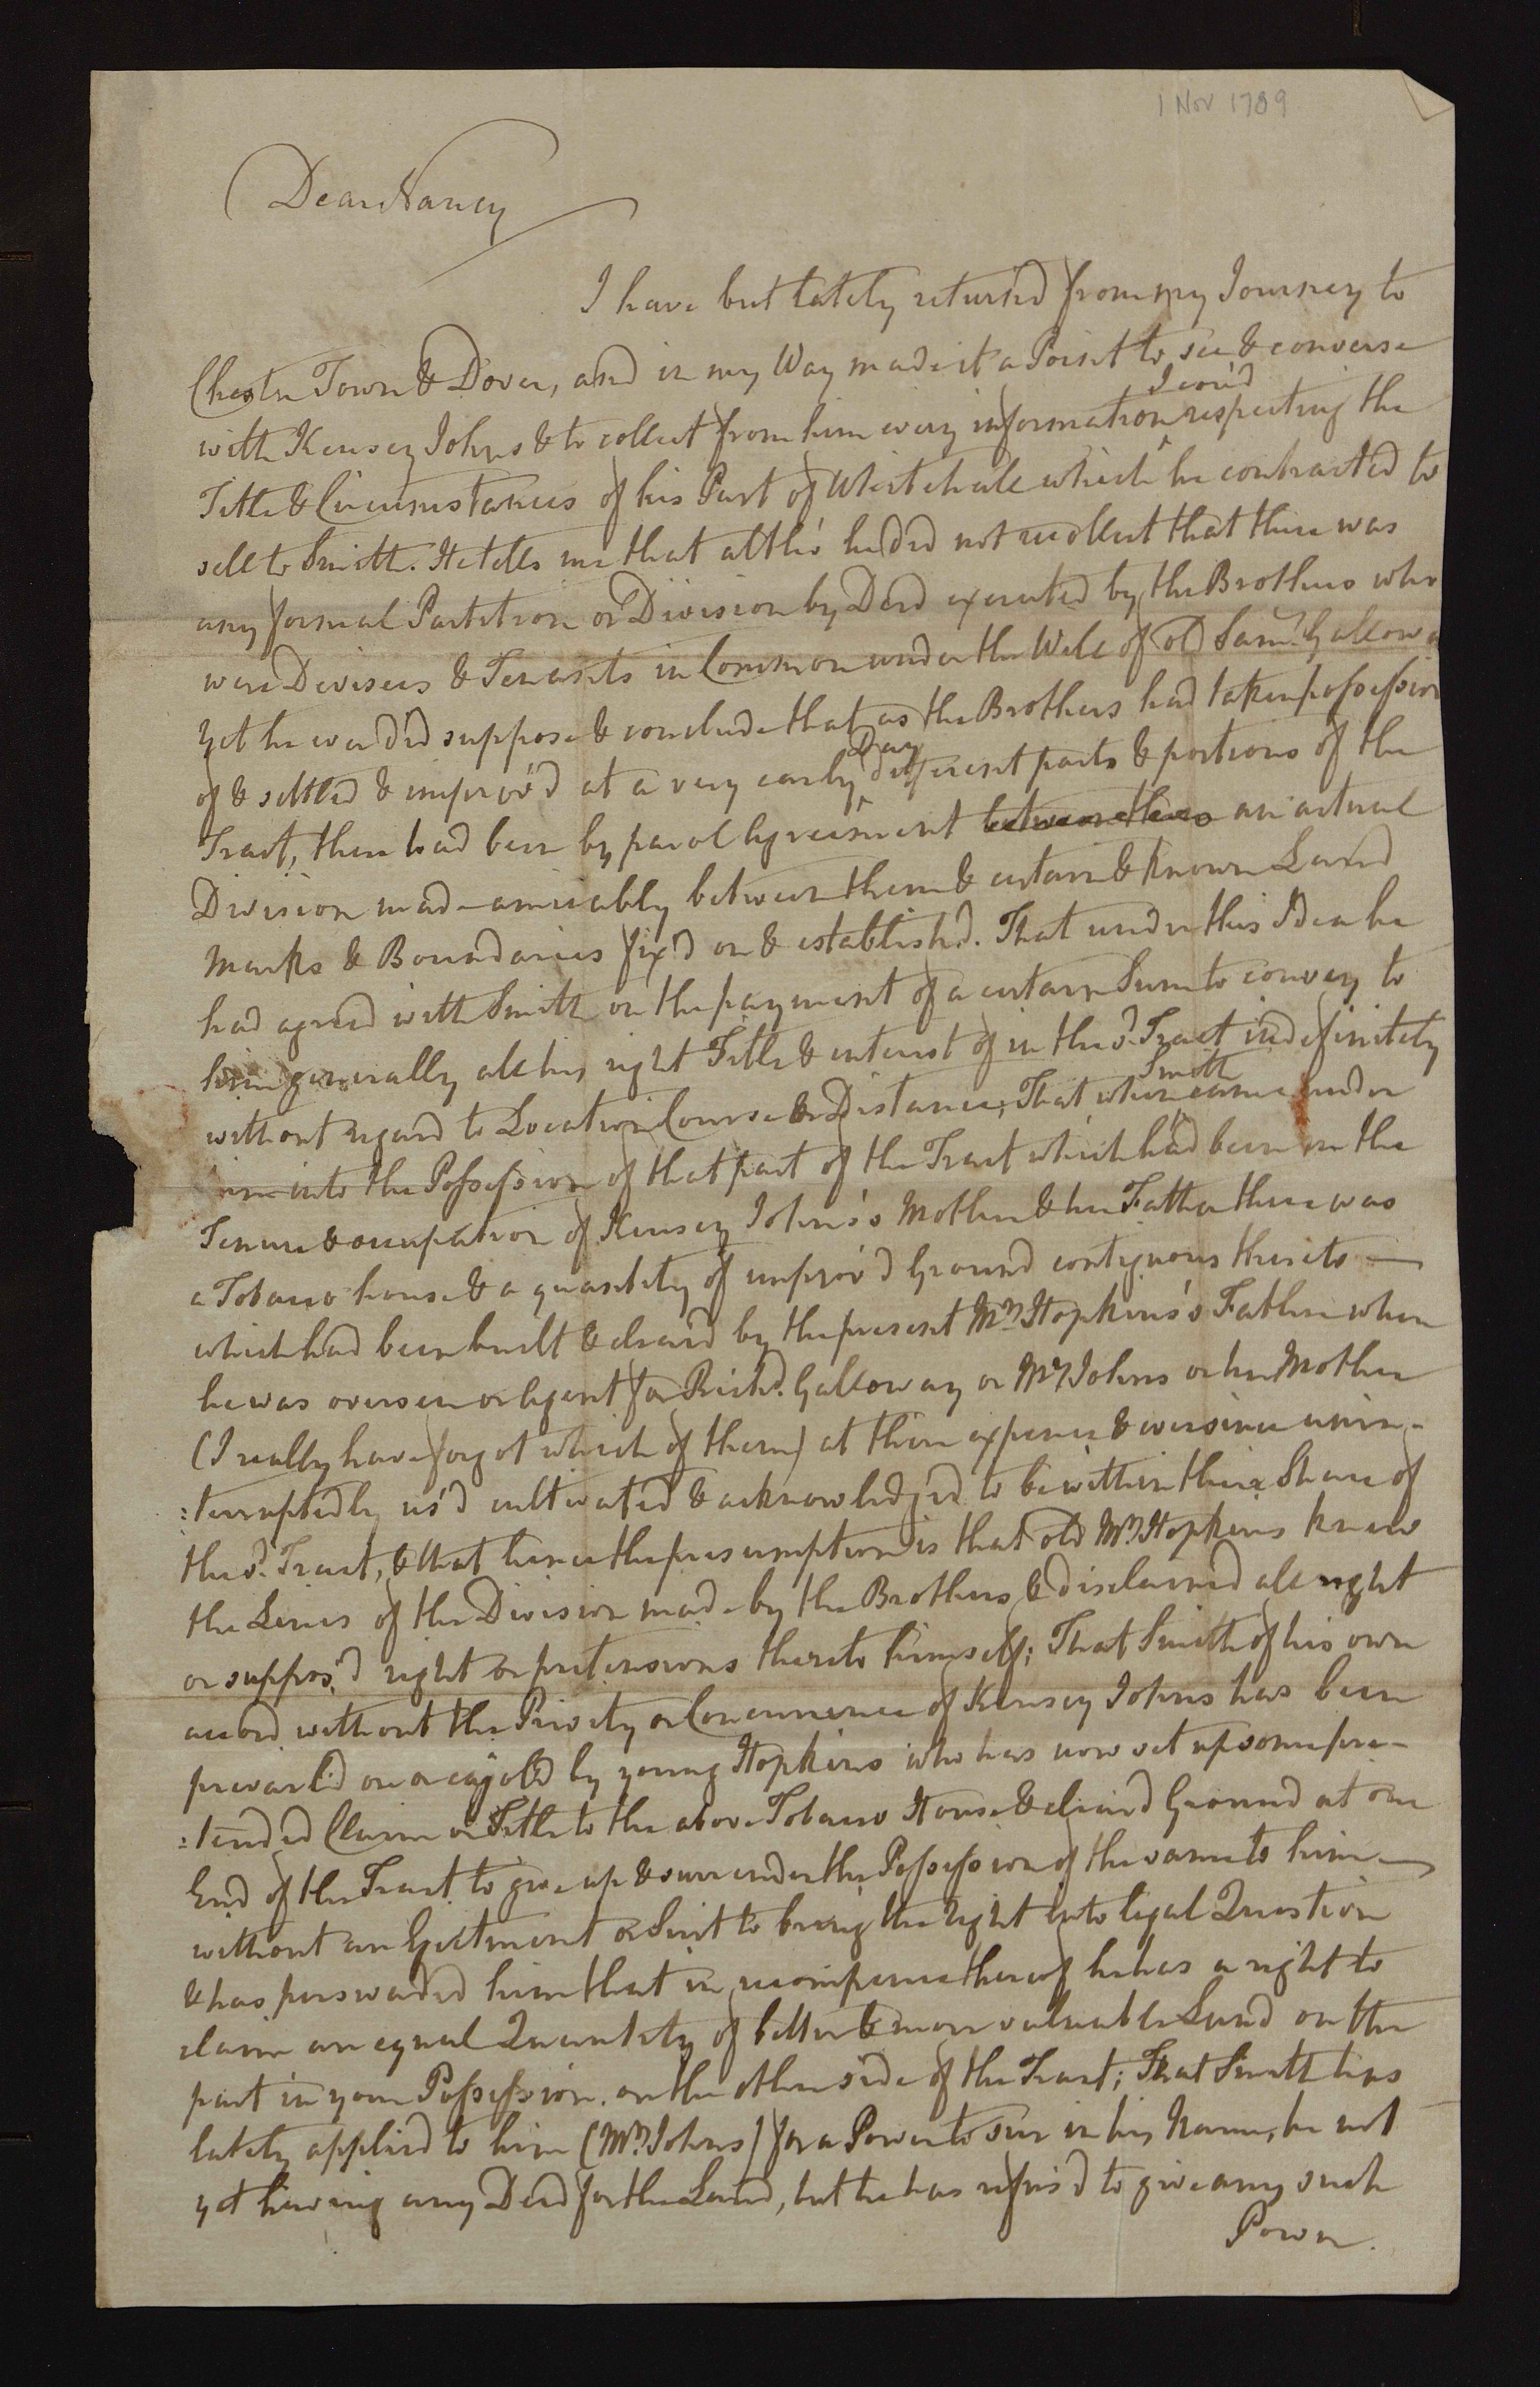 1 Nov 1789
Dear Nancy
I have but lately return'd from my Journey to
Chester Town & Dover, and in my Way made it a Point to see & converse
I cou'd
with Kensey Johns & to collect from him every information ^ respecting the
Title & Circumstances of his Part of Whitehall which he contracted to
sell to Smith. He tells me that altho' he did not recollect that there was
any formal Partition or Division by Deed executed by the Brothers who
were Devisees & Tenants in Common under the Will of old Saml. Gallow
yet he wou'd suppose & conclude that as the Brothers had taken possession
Day
of & settled & improv'd at a very early ^ different parts & portions of the
Tract, there had been by parol Agreement between them an actual
Division made amicably between them & certain & known Land
Marks & Boundaries fix'd on & establish'd. That under this Idea he
had agreed with Smith on the payment of a certain Sum to convey to
him generally all his right Title & interest of in the sd. Tract indefinitely
Smith
without regard to Location Course & Distance; That when came under
into the Possession of that part of the Tract which had been in the
Tenure & occupation of Kensey Johns's Mother & her Father there was
a Tobacco house & a quantity of improv'd Ground contiguous thereto —
which had been built & clear'd by the present Mr. Hopkins's Father when
he was overseer or Agent for Richd. Galloway or Mrs Johns or her Mother
(I really have forgot which of them) at their expence & ever since unin-
:terruptedly us'd cultivated & acknowledg'd to be within their Share of
the sd. Tract, & that hence the presumption is that old Mr. Hopkins knew
the Lines of the Division made by the Brothers, & disclaimed all right
or suppos'd right or pretensions thereto himself; That Smith of his own
accord without the Privity or Concurrence of Kensey Johns has been
prevail'd on or cajol'd by young Hopkins who has now set up some pre-
:tended Claim or Title to the above Tobacco House & clear'd Ground at one
End of the Tract to give up & surrender the Possession of the same to him —
without an Ejectment or Suit to bring the right into legal Question
& has perswaded him that in recompence thereof he has a right to
claim an equal Quantity of better & more valuable Land on the
part in your Possession. on the other side of the Tract; That Smith has
lately applied to him (Mr. Johns) for a Power to sue in his Name, he not
yet having any Deed for the Land, but he has refus'd to give any such
Power.